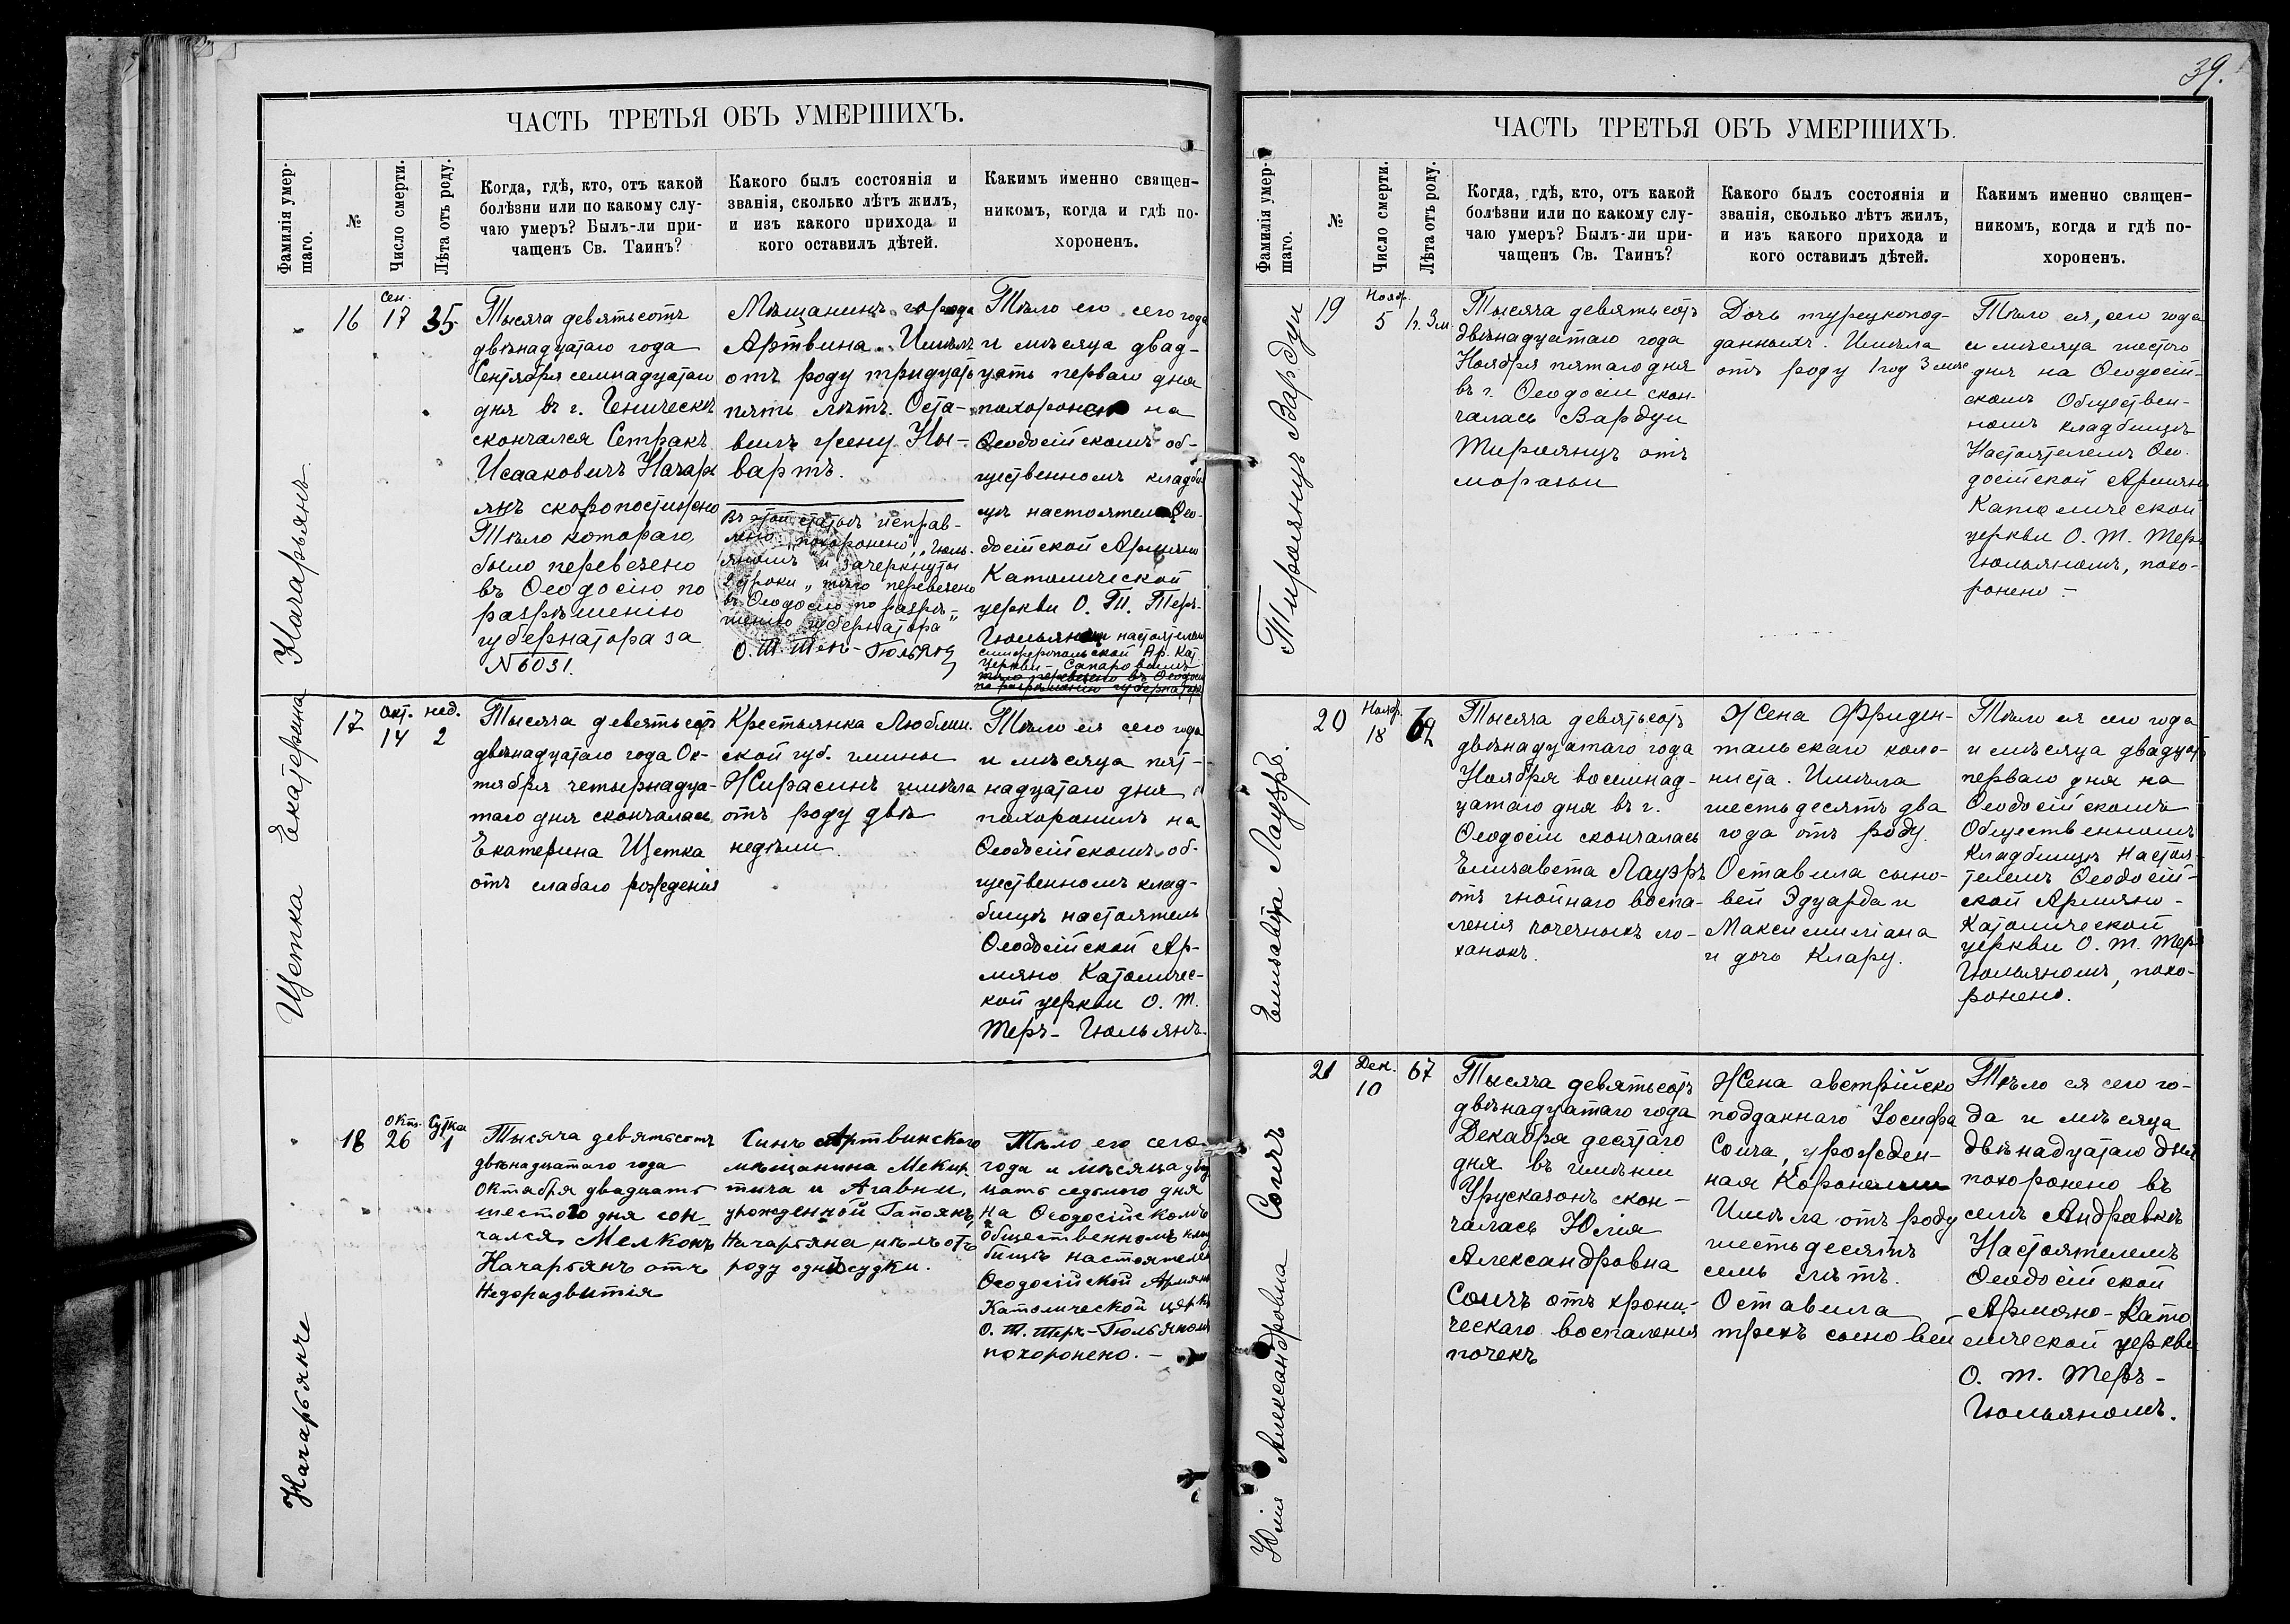 39.
ЧАСТЬ ТРЕТЬЯ ОБЪ УМЕРШИХЪ.
Фамилія умер-
шаго.
№
Число смерти.
Лѣта отъ роду.
Когда, гдѣ, кто, отъ какой
болѣзни или по какому слу-
чаю умеръ? Былъ-ли при-
чащенъ Св. Таинъ?
Какого былъ состоянія и
званія, сколько лѣтъ жилъ,
и изъ какого прихода и
кого оставилъ дѣтей.
Какимъ именно священ-
никомъ, когда и гдѣ по-
хороненъ.
Начарьянъ.
16
Сен.
17
35
Тысяча девятьсотъ
двѣнадцатаго года
Сентября семнадцатаго
дня въ г. Геническѣ
скончался Сетракъ
Исааковичъ Начарь
янъ скоропостижно
Тѣло котораго,
было перевезено
въ Ѳеодосію по
разрѣшенію
губернатора за
№ 6031.
Мѣщанинъ города
Артвина. Имѣлъ
отъ роду тридцать
пять лѣтъ. Оста-
вилъ жену Ны-
вартъ.
Въ этой статьѣ исправ-
лено „похоронено", „Гюль-
яномъ" и зачеркнуты
строки „тѣло перевезено
въ Ѳеодосію по разрѣ-
шенію губернатора"
О. Т. Теръ-Гюльянъ
Тѣло его сего года
и мѣсяца двад-
цать перваго дня
похоронено на
Ѳеодосійскомъ об-
щественномъ кладби
щѣ настоятел Ѳео-
досійской Армяно
Католической
церкви О. Т. Теръ-
Гюльяномъ настоятелемъ
симферопольской Ар. Кат.
церкви - Сапаровымъ
тѣло перевезено въ Ѳеодосію
по разрѣшенію губернатора
Щетка Екатерина
17
Окт.
14
нед.
2
Тысяча девятьсотъ
двѣнадцатаго года Ок-
тября четырнадца-
таго дня скончалась
Екатерина Щетка
отъ слабаго рожденія
Крестьянка Люблин.
ской губ. гмины
Жирасинъ имѣла
отъ роду двѣ
недѣли.
Тѣло ея сего года
и мѣсяца пят-
надцатаго дня
похоронилъ на
Ѳеодосійскомъ об-
щественномъ клад-
бищѣ настоятель
Ѳеодосійской Ар-
мяно Католичес-
кой церкви О. Т.
Теръ-Гюльянъ.
Начарьянче
18
Окт.
26
Сутка
1
Тысяча девятьсотъ
двѣнадцатаго года
Октября двадцать
шестого дня скон_
чался Мелконъ
Начарьянъ отъ
Недоразвитія
Синъ Артвинскаго
мѣщанина Мекир
тича и Агавни,
урожденной Гапоянъ,
Начарьяна имѣлъ отъ
роду одни судки.
Тѣло его сего
года и мѣсяца двад
цать седьмого дня
на Ѳеодосійскомъ
общественномъ клад
бищѣ настоятелемъ
Ѳеодосійской Армяно
Католической церкви
О. Т. Теръ-Гюльяномъ
похоронено. —
ЧАСТЬ ТРЕТЬЯ ОБЪ УМЕРШИХЪ.
Фамилія умер-
шаго.
№
Число смерти.
Лѣта отъ роду.
Когда, гдѣ, кто, отъ какой
болѣзни или по какому слу-
чаю умеръ? Былъ-ли при-
чащенъ Св. Таинъ?
Какого былъ состоянія и
званія, сколько лѣтъ жилъ,
и изъ какого прихода и
кого оставилъ дѣтей.
Какимъ именно священ-
никомъ, когда и гдѣ по-
хороненъ.
Тироянцъ Вардуи
19
Нояб.
5
1г. 3м
Тысяча девятьсотъ
двѣнадцатаго года
Ноября пятаго дня
въ г. Ѳеодосіи скон-
чалась Вардуи
Тироянцъ отъ
моразьи
Дочь турецкопод-
данныхъ. Имѣла
отъ роду 1 год 3 мѣс
Тѣло ея, сего года
и мѣсяца шестого
дня на Ѳеодосій-
скомъ Обществен-
номъ кладбищѣ
Настоятелемъ Ѳео-
досійской Армяно
Католической
церкви О. Т. Теръ
Гюльяномъ, похо-
ронено —
Елизавета Лауэръ.
20
Нояб.
18
62
Тысяча девятьсотъ
двѣнадцатаго года
Ноября восемнад-
цатаго дня въ г.
Ѳеодосіи скончалась
Елизавета Лауэръ
отъ гнойнаго воспа-
ленія почечныхъ ло-
ханокъ.
Жена Фриден-
тальскаго коло-
ниста. Имѣла
шестьдесятъ два
года отъ роду.
Оставила сыно-
вей Эдуарда и
Максимиліана
и дочь Клару.
Тѣло ея сего года
и мѣсяца двадцать
перваго дня на
Ѳеодосійскомъ
Общественномъ
Кладбищѣ Настоя-
телемъ Ѳеодосій-
ской Армяно-
Католической
церкви О. Т. Теръ
Гюльяномъ, похо-
ронено.
Юлія Александровна Соичъ
21
Дек.
10
67
Тысяча девятьсотъ
двѣнадцатаго года
Декабря десятаго
дня въ имѣніи
Урусказонъ скон-
чалась Юлія
Александровна
Соичъ отъ хрони-
ческаго воспаленія
почекъ
Жена австрійско
подданнаго Іосифа
Соича, урожден-
ная Коронелли
Имѣла отъ роду
шестьдесятъ
семь лѣтъ.
Оставила
трехъ сыновей
Тѣло ея сего го-
да и мѣсяца
двѣнадцатаго дня
похоронено въ
селѣ Андревкѣ
Настоятелемъ
Ѳеодосійской
Армяно-Като
лической церкви
О. Т. Теръ-
Гюльяномъ.